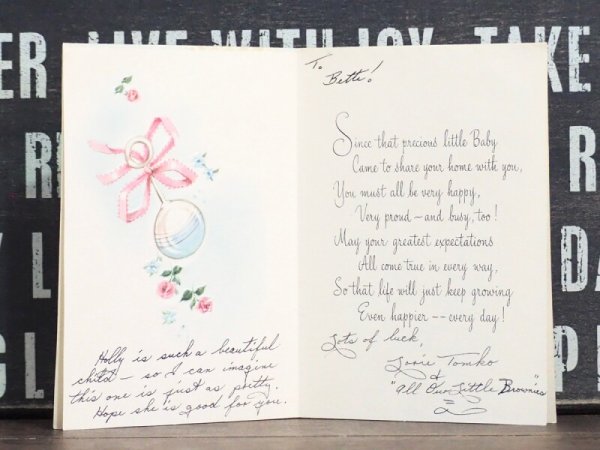 ER LIVE WITH JOY TAKE
Holly is such a beautiful
child — so I can imagine
this one is just as pretty.
Hope she is good for you.
To
Bette!
Since that precious little Baby
Came to share your home with you,
You must all be very happy,
Very proud — and busy, too!
May your greatest expectations
All come true in every way,
So that life will just keep growing
Even happier -- every day!
Lots of luck,
Lorie Tomko
&
"All Our Little Brownies"